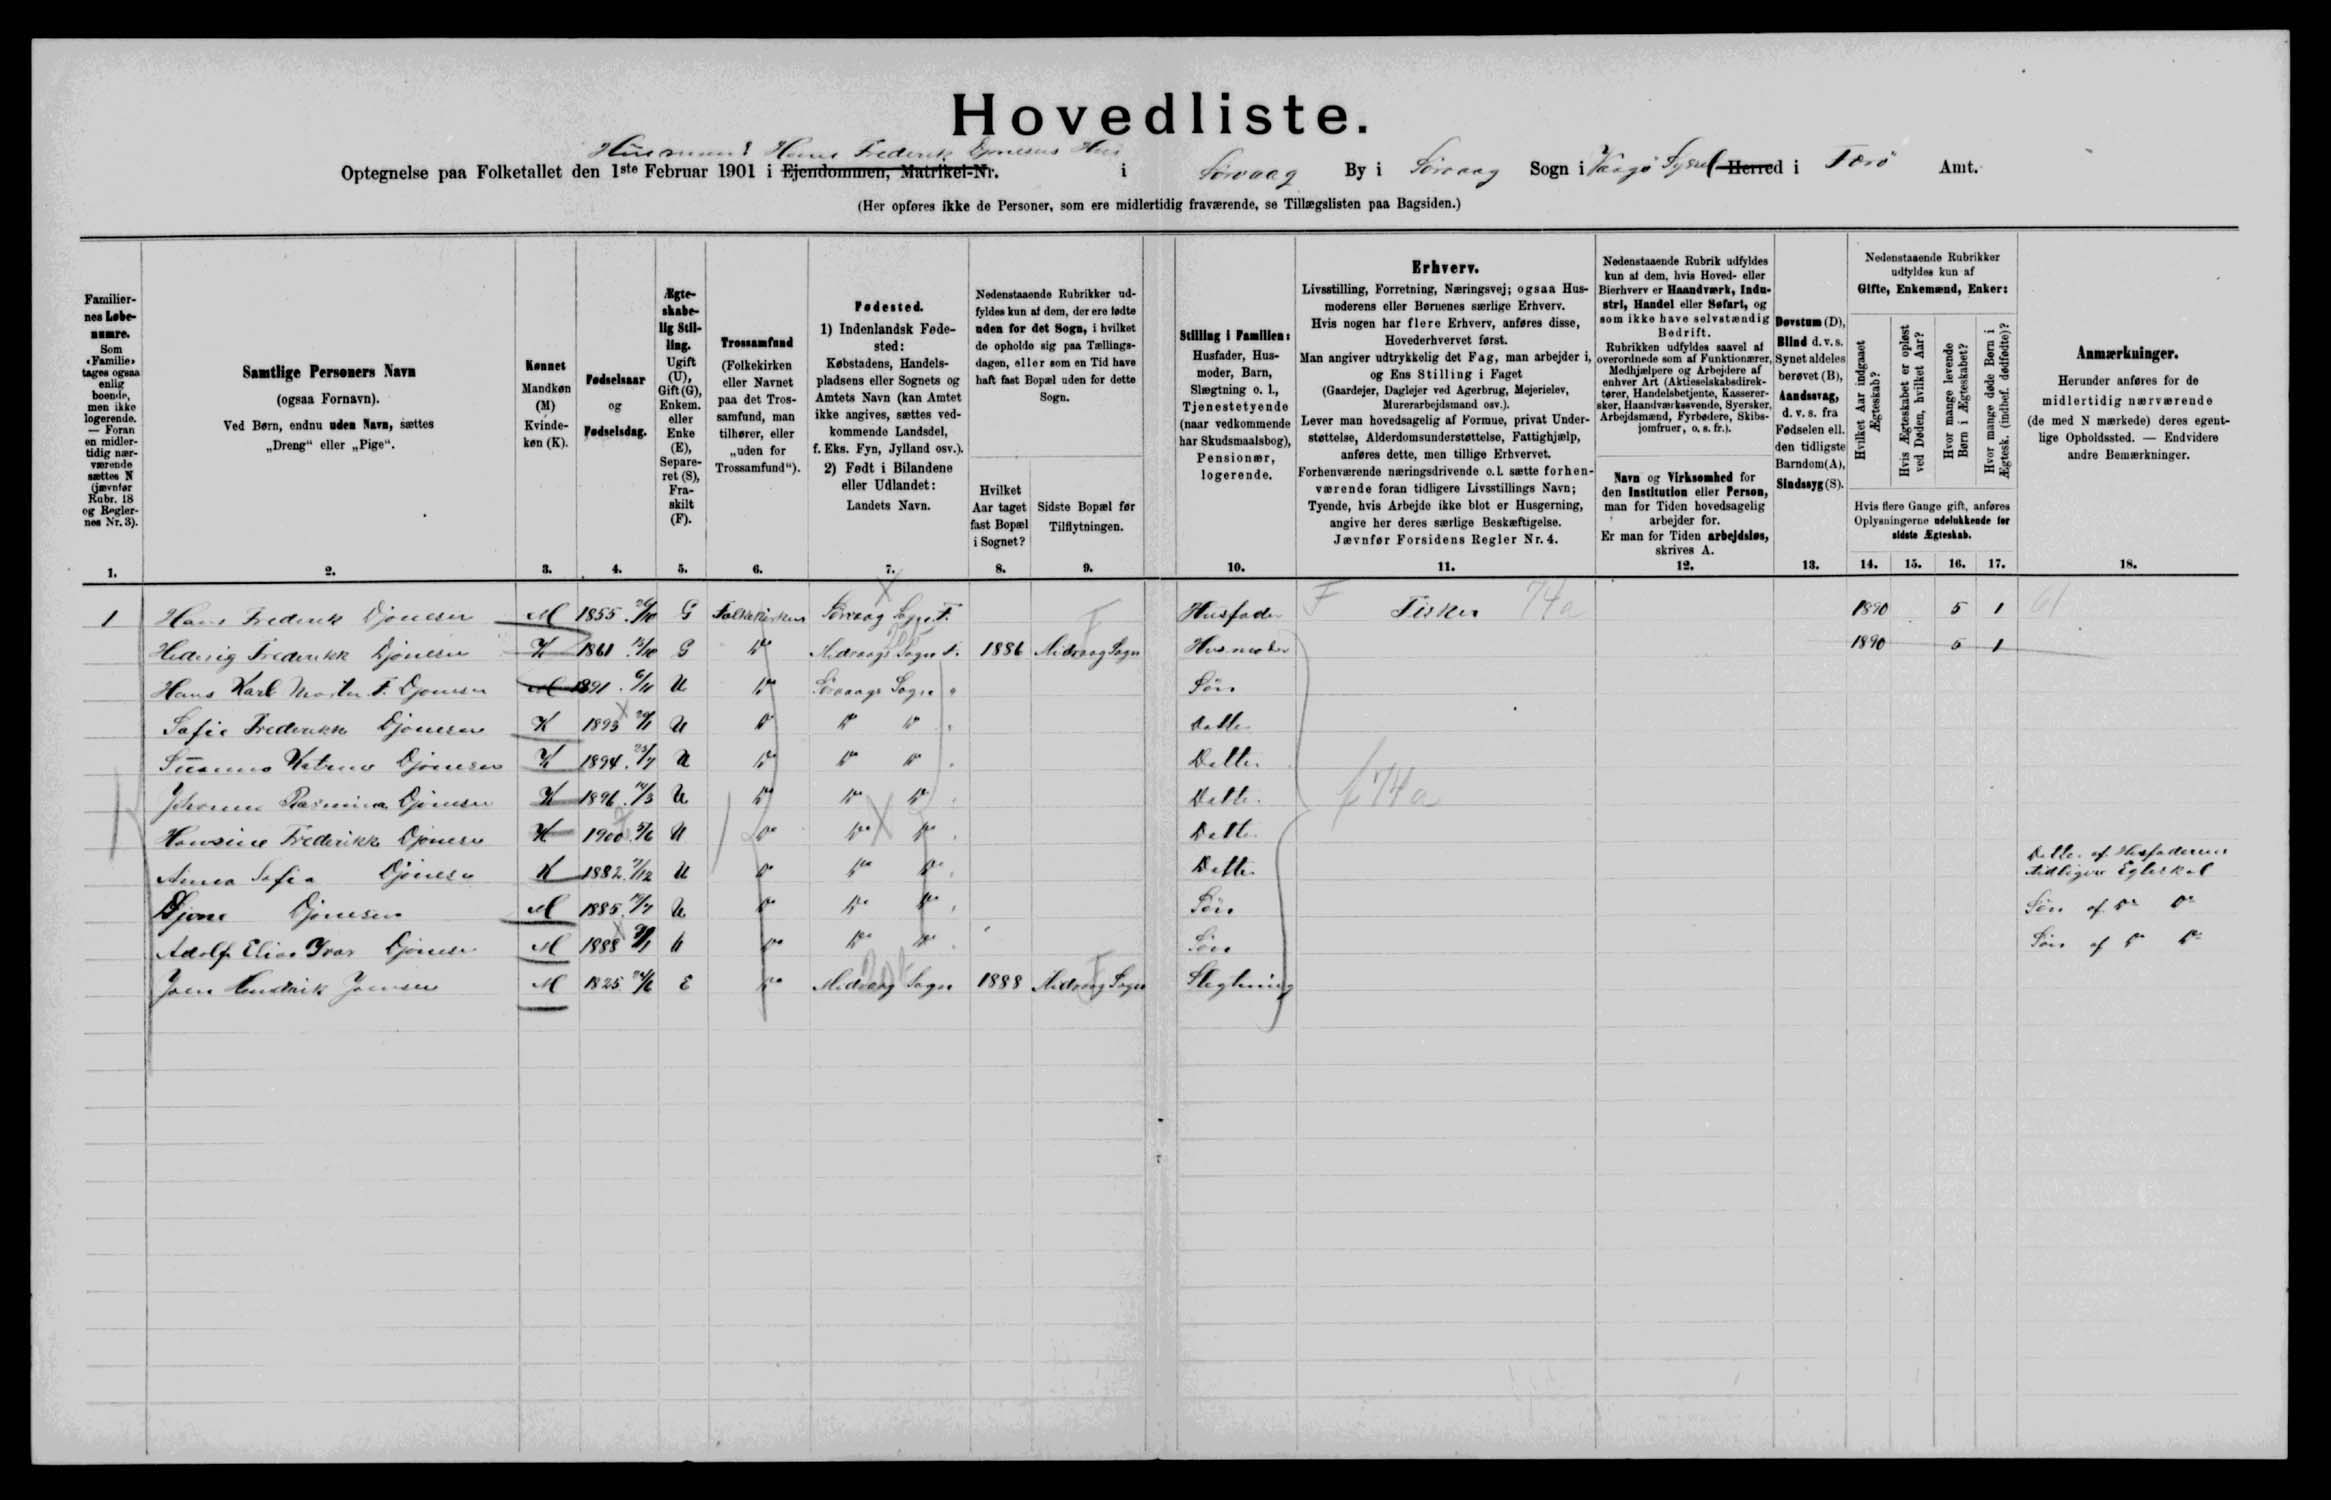 Hovedliste.
Husmand Hans Frederik Djonesens Hus
Optegnelse paa Folketallet den 1ste Februar 1901 i Ejendommen, Matrikel-Nr. i Sørvaag By i Sørvaag Sogn i Vaagø Syssel Herred i Færø Amt.
(Her opføres ikke de Personer, som ere midlertidig fraværende, se Tillægslisten paa Bagsiden.)
Familier-
nes Løbe-
numre.
Som
‹Familie›
tages ogsaa
enlig
boende,
men ikke
logerende.
— Foran
en midler-
tidig nær-
værende
sættes N
(jævnfør
Rubr. 18
og Regler-
nes Nr. 3).
1.
Samtlige Personers Navn
(ogsaa Fornavn).
Ved Børn, endnu uden Navn, sættes
„Dreng“ eller „Pige“.
2.
Kønnet
Mandkøn
(M)
Kvinde-
køn (K).
3.
Fødselsaar
og
Fødselsdag.
4.
Ægte-
skabe-
lig Stil-
ling.
Ugift
(U),
Gift (G),
Enkem.
eller
Enke
(E),
Separe-
ret (S),
Fra-
skilt
(F).
5.
Trossamfund
(Folkekirken
eller Navnet
paa det Tros-
samfund, man
tilhører, eller
„uden for
Trossamfund“).
6.
Fødested.
1) Indenlandsk Føde-
sted:
Købstadens, Handels-
pladsens eller Sognets og
Amtets Navn (kan Amtet
ikke angives, sættes ved-
kommende Landsdel,
f. Eks. Fyn, Jylland osv.).
2) Født i Bilandene
eller Udlandet:
Landets Navn.
7.
Nedenstaaende Rubrikker ud-
fyldes kun af dem, der ere fødte
uden for det Sogn, i hvilket
de opholde sig paa Tællings-
dagen, eller som en Tid have
haft fast Bopæl uden for dette
Sogn.
Hvilket
Aar taget
fast Bopæl
i Sognet?
8.
Sidste Bopæl før
Tilflytningen.
9.
Stilling i Familien:
Husfader, Hus-
moder, Barn,
Slægtning o. l.,
Tjenestetyende
(naar vedkommende
har Skudsmaalsbog),
Pensionær,
logerende.
10.
Erhverv.
Livsstilling, Forretning, Næringsvej; ogsaa Hus-
moderens eller Børnenes særlige Erhverv.
Hvis nogen har flere Erhverv, anføres disse,
Hovederhvervet først.
Man angiver udtrykkelig det Fag, man arbejder i,
og Ens Stilling i Faget
(Gaardejer, Daglejer ved Agerbrug, Mejerielev,
Murerarbejdsmand osv.).
Lever man hovedsagelig af Formue, privat Under-
støttelse, Alderdomsunderstøttelse, Fattighjælp,
anføres dette, men tillige Erhvervet.
Forhenværende næringsdrivende o. l. sætte forhen-
værende foran tidligere Livsstillings Navn;
Tyende, hvis Arbejde ikke blot er Husgerning,
angive her deres særlige Beskæftigelse.
Jævnfør Forsidens Regler Nr. 4.
11.
Nedenstaaende Rubrik udfyldes
kun af dem, hvis Hoved- eller
Bierhverv er Haandværk, Indu-
stri, Handel eller Søfart, og
som ikke have selvstændig
Bedrift.
Rubrikken udfyldes saavel af
overordnede som af Funktionærer,
Medhjælpere og Arbejdere af
enhver Art (Aktieselskabsdirek-
tører, Handelsbetjente, Kasserer-
sker, Haandværkssvende, Syersker,
Arbejdsmænd, Fyrbødere, Skibs-
jomfruer, o. s. fr.).
Navn og Virksomhed for
den Institution eller Person,
man for Tiden hovedsagelig
arbejder for.
Er man for Tiden arbejdsløs,
skrives A.
12.
Døvstum (D),
Blind d. v. s.
Synet aldeles
berøvet (B),
Aandssvag,
d. v. s. fra
Fødselen ell.
den tidligste
Barndom (A),
Sindssyg (S).
13.
Nedenstaaende Rubrikker
udfyldes kun af
Gifte, Enkemænd, Enker:
Hvilket Aar indgaaet
Ægteskab?
Hvis Ægteskabet er opløst
ved Døden, hvilket Aar?
Hvor mange levende
Børn i Ægteskabet?
Hvor mange døde Børn i
Ægtesk. (indbef. dødfødte)?
Hvis flere Gange gift, anføres
Oplysningerne udelukkende for
sidste Ægteskab.
14. 15. 16. 17.
Anmærkninger.
Herunder anføres for de
midlertidig nærværende
(de med N mærkede) deres egent-
lige Opholdssted. — Endvidere
andre Bemærkninger.
18.
1 Hans Frederik Djonesen M 1855 26/10 G Folkekirken Sørvaag Sogn F. Husfader F Fisker 74a 1890 5 1 61
Hedevig Frederikke Djonesen K 1861 G Do Midvaags Sogn F. 1886 Midvaag Sogn Husmoder 1890 5 1
Hans Karl Morten F. Djonesen M 1891 6/11 U Do Sørvaags Sogn " Søn
Sofie Frederikke Djonesen K 1893 U Do Do Do " Datter
Susanne Katrine Djonesen K 1894 23/7 U Do Do Do " Datter
Johanne Rasmina Djonesen K 1896 14/3 U Do Do Do " Datter f 74a
Hansine Frederikke Djonesen K 1900 5/6 U Do Do Do " Datter
Anna Sofia Djonesen K 1882 7/12 U Do Do Do " Datter Datter af Husfaderens
tidligere Egteskab
Djone Djonesen M 1885 U Do Do Do " Søn Søn af Do Do
Adolf Elias Ivar Djonesen M 1888 U Do Do Do " Søn Søn af Do Do
Joen Hendrik Joensen M 1825 24/6 E Do Midvaag Sogn 1888 Midvaag Sogn Slegtning